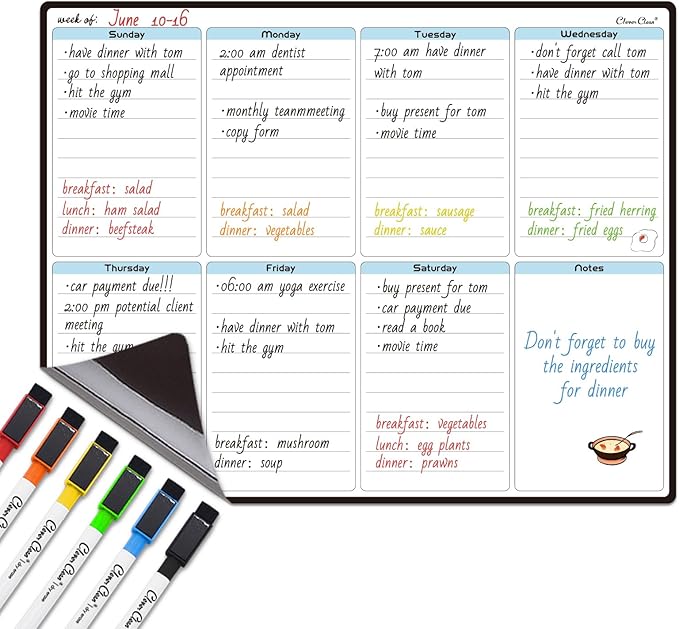 week of: June 10-16
Clever Clean®
Sunday
·have dinner with tom
·go to shopping mall
·hit the gym
·movie time
breakfast: salad
lunch: ham salad
dinner: beefsteak
Monday
2:00 am dentist
appointment
·monthly teammmeeting
·copy form
breakfast: salad
dinner: vegetables
Tuesday
7:00 am have dinner
with tom
·buy present for tom
·movie time
breakfast: sausage
dinner: sauce
Wednesday
·don't forget call tom
·have dinner with tom
·hit the gym
breakfast: fried herring
dinner: fried eggs
Thursday
·car payment due!!!
2:00 pm potential client
meeting
·hit the gym
Friday
·06:00 am yoga exercise
·have dinner with tom
·hit the gym
breakfast: mushroom
dinner: soup
Saturday
·buy present for tom
·car payment due
·read a book
·movie time
breakfast: vegetables
lunch: egg plants
dinner: prawns
Notes
Don't forget to buy
the ingredients
for dinner
Clever Clean® | dry erase
Clever Clean® | dry erase
Clever Clean® | dry erase
Clever Clean® | dry erase
Clever Clean® | dry erase